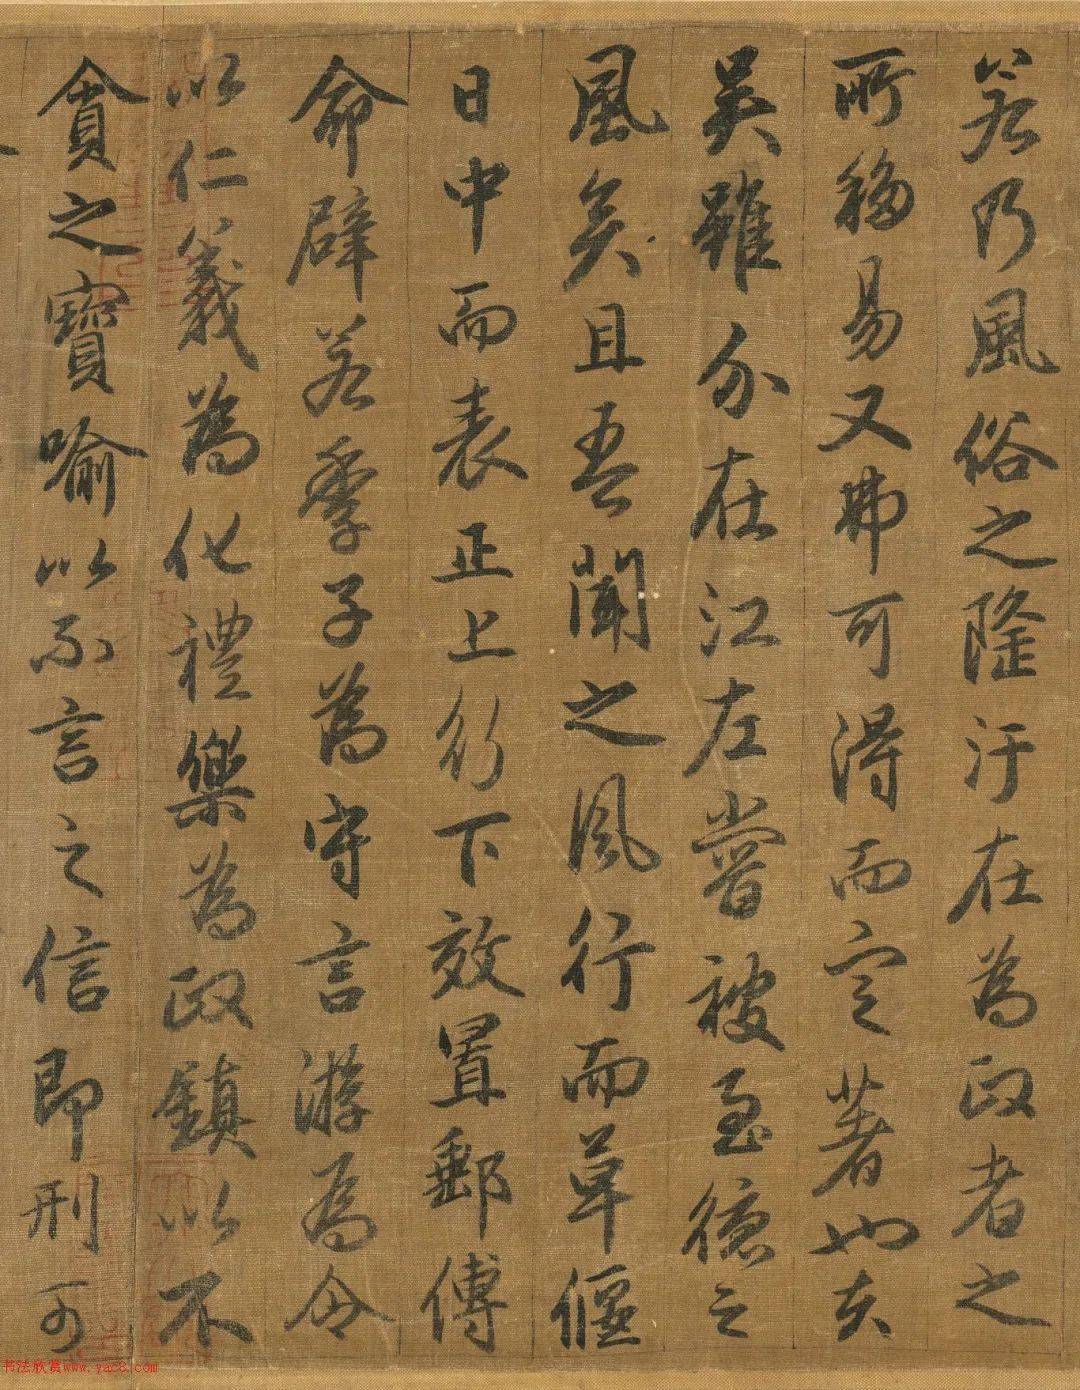 若乃風俗之隆汙在為政者之
所移易又弗可得而定著也夫
吳雖分在江左嘗被至德之
風矣且吾聞之風行而草偃
日中而表正上行下效置郵傳
命辟若季子為守言游為令
以仁義為化禮樂為政鎮以不
貪之寶喻以不言之信即刑可
书法欣赏www.yac8.com